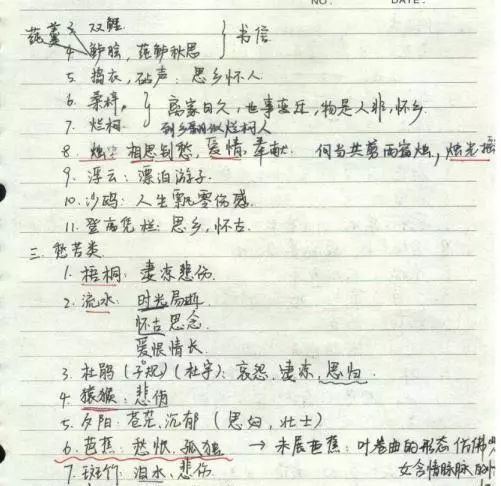 NO. DATE.
莼羹 3. 双鲤 } 书信
4. 鲈脍, 莼鲈秋思
5. 捣衣, 砧声: 思乡怀人
6. 桑梓, } 离家日久, 世事变迁, 物是人非, 怀乡
7. 烂柯 到乡翻似烂柯人
8. 烛: 相思别愁, 爱情, 奉献. 何当共剪西窗烛, 烛光
9. 浮云: 漂泊游子
10. 沙鸥: 人生飘零伤感
11. 登高凭栏: 思乡, 怀古
三. 愁苦类
1. 梧桐: 凄凉悲伤.
2. 流水: 时光易逝
怀古思念.
爱恨情长
3. 杜鹃 (子规) (杜宇): 哀怨, 凄凉, 思归
4. 猿猴: 悲伤
5. 夕阳: 苍茫, 沉郁 (思妇, 壮士)
6. 芭蕉: 愁恨, 孤独 → 未展芭蕉: 叶卷曲的形态仿佛
7. 斑竹: 泪水, 悲伤. 女含情脉脉的